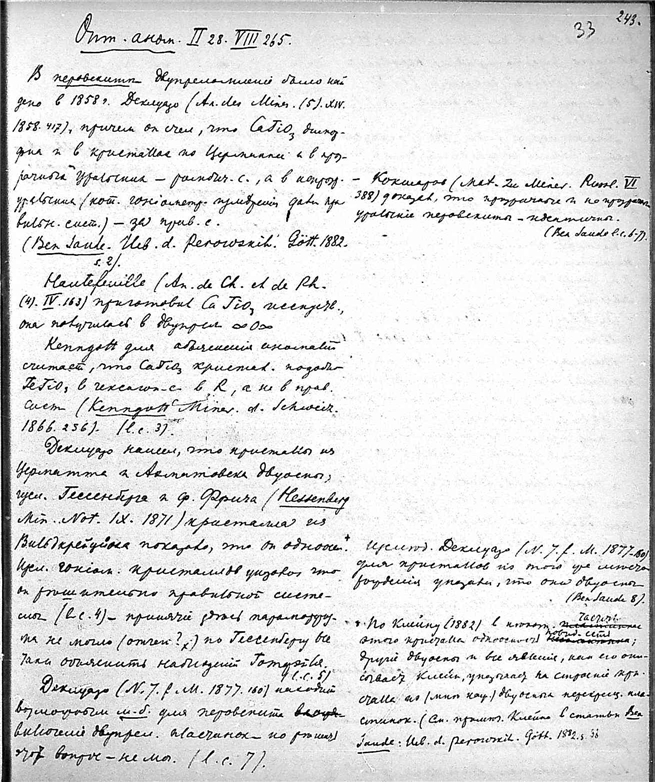 243.
33
Опт. аном. II 28. VIII 265.
В перовските двупреломление было най
дено в 1858 г. Деклуазо (An. des Mines. (5). XIV.
1858. 417), причем он счел, что CaTiO3 диморф
фна и в кристаллах из Церматта и в про
зрачных Уральских - ромбич. с., а в непрозр.
уральских (кот. гоніометр. измѣренія дали пра
вильн. сист.) - за прав. с.
(Ben Saude. Ueb. d. Perowskit. Gött. 1882.
s. 2).
Hautefeuille (An. de Ch. et de Ph.
(4). IV. 163) приготовил CaTiO3 искусств.,
она получилась в двупрел. ∞O∞
Kenngott для объяснения аномалий
считает, что CaTiO3 кристал. подобно
FeTiO3 в гексагон. с. в R, а не в прав.
сист. (Kenngott Miner. d. Schweiz.
1866. 256). (l. c. 3).
Деклуазо нашел, что кристаллы из
Церматта и Ахматовска двуосны,
цсл. Гессенберга и ф. Фрича (Hessenberg
Min. Not. IX. 1871) кристалла из
Вильдкрейцйоха показало, что он одноосн.+
Цсл. гоніом. кристаллов указов. что
он относительно правильной систе-
мы (l. c. 4) - принятие здесь параморфиз
ма не могло (отчего?) по Гессенбергу все
таки объяснить наблюдений
(l. c. 5)
Деклуазо (N. J. f. M. 1877. 160) находит
возможным м. б. для перовскита
включение двупрел. пластинок - но решить
этот вопрос - не мог. (l. c. 7).
- Кокшаров (Mat. Zu Miner. Russl. VI
388) доказал, что прозрачные и непрозрачн
уральские перовскиты - идентичны.
(Ben Saude l. c. 6-7).
Исслѣд. Деклуазо (N. J. f. M. 1877. 160)
для кристаллов из того же место
рождения указали, что они двуосны
(Ben Saude 8).
+ По Клейну (1882) в части
этого кристалла одноосной;
другие двуосны и все явления, как его опи-
сывает Клейн, указывает на строение кри-
сталла из (мног. кау.) двуосных перекрещ. пла-
стинок. (См. примеч. Клейна в статье Ben
Saude. Ueb. d. Perowskit. Gött. 1882. s. 33